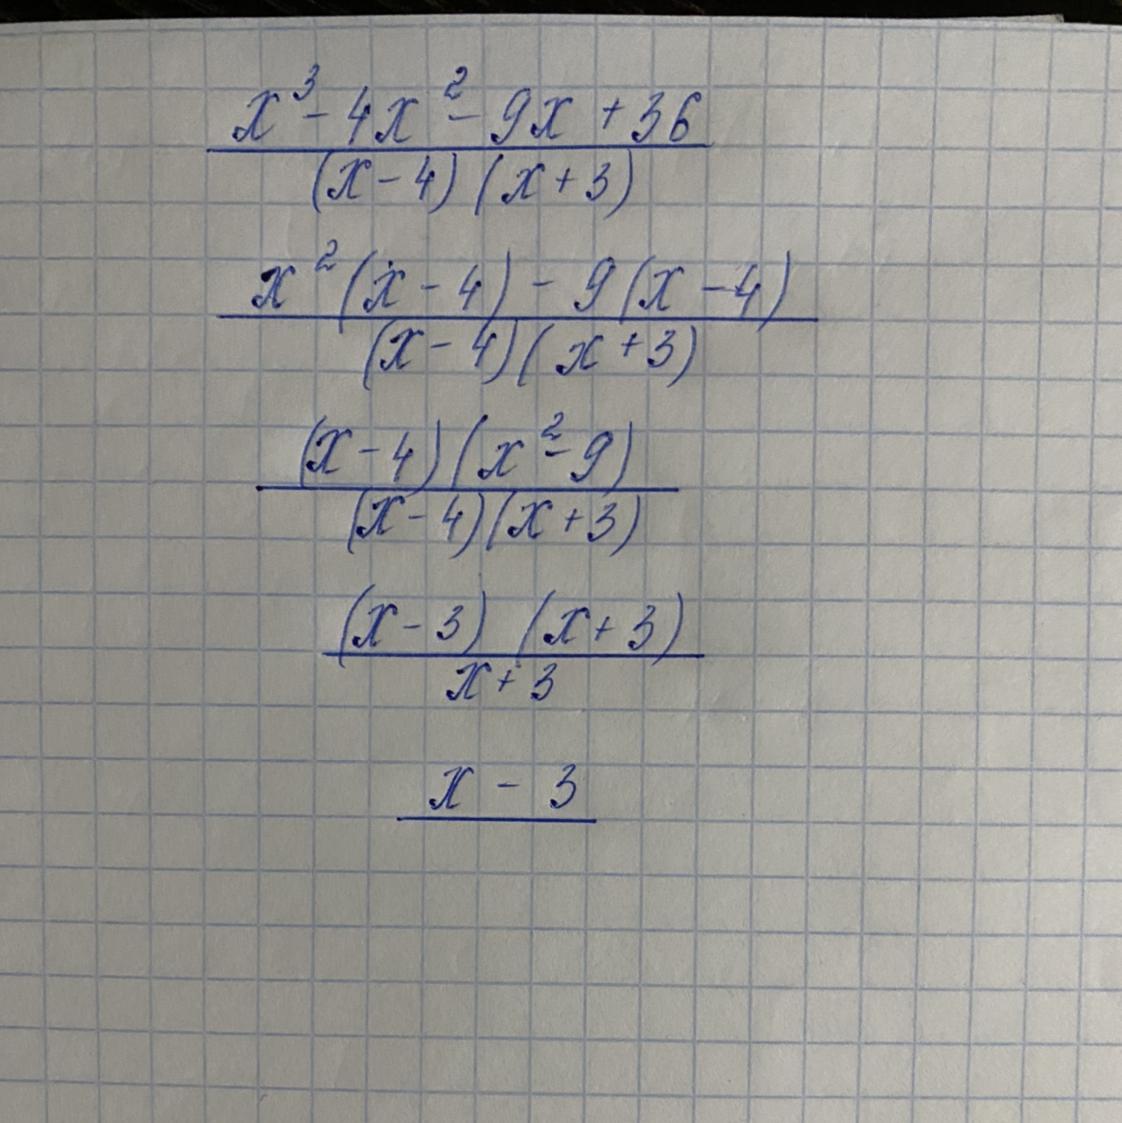 x³ - 4x² - 9x + 36
(x - 4) (x + 3)
x² (x - 4) - 9 (x - 4)
(x - 4) (x + 3)
(x - 4) (x² - 9)
(x - 4) (x + 3)
(x - 3) (x + 3)
x + 3
x - 3